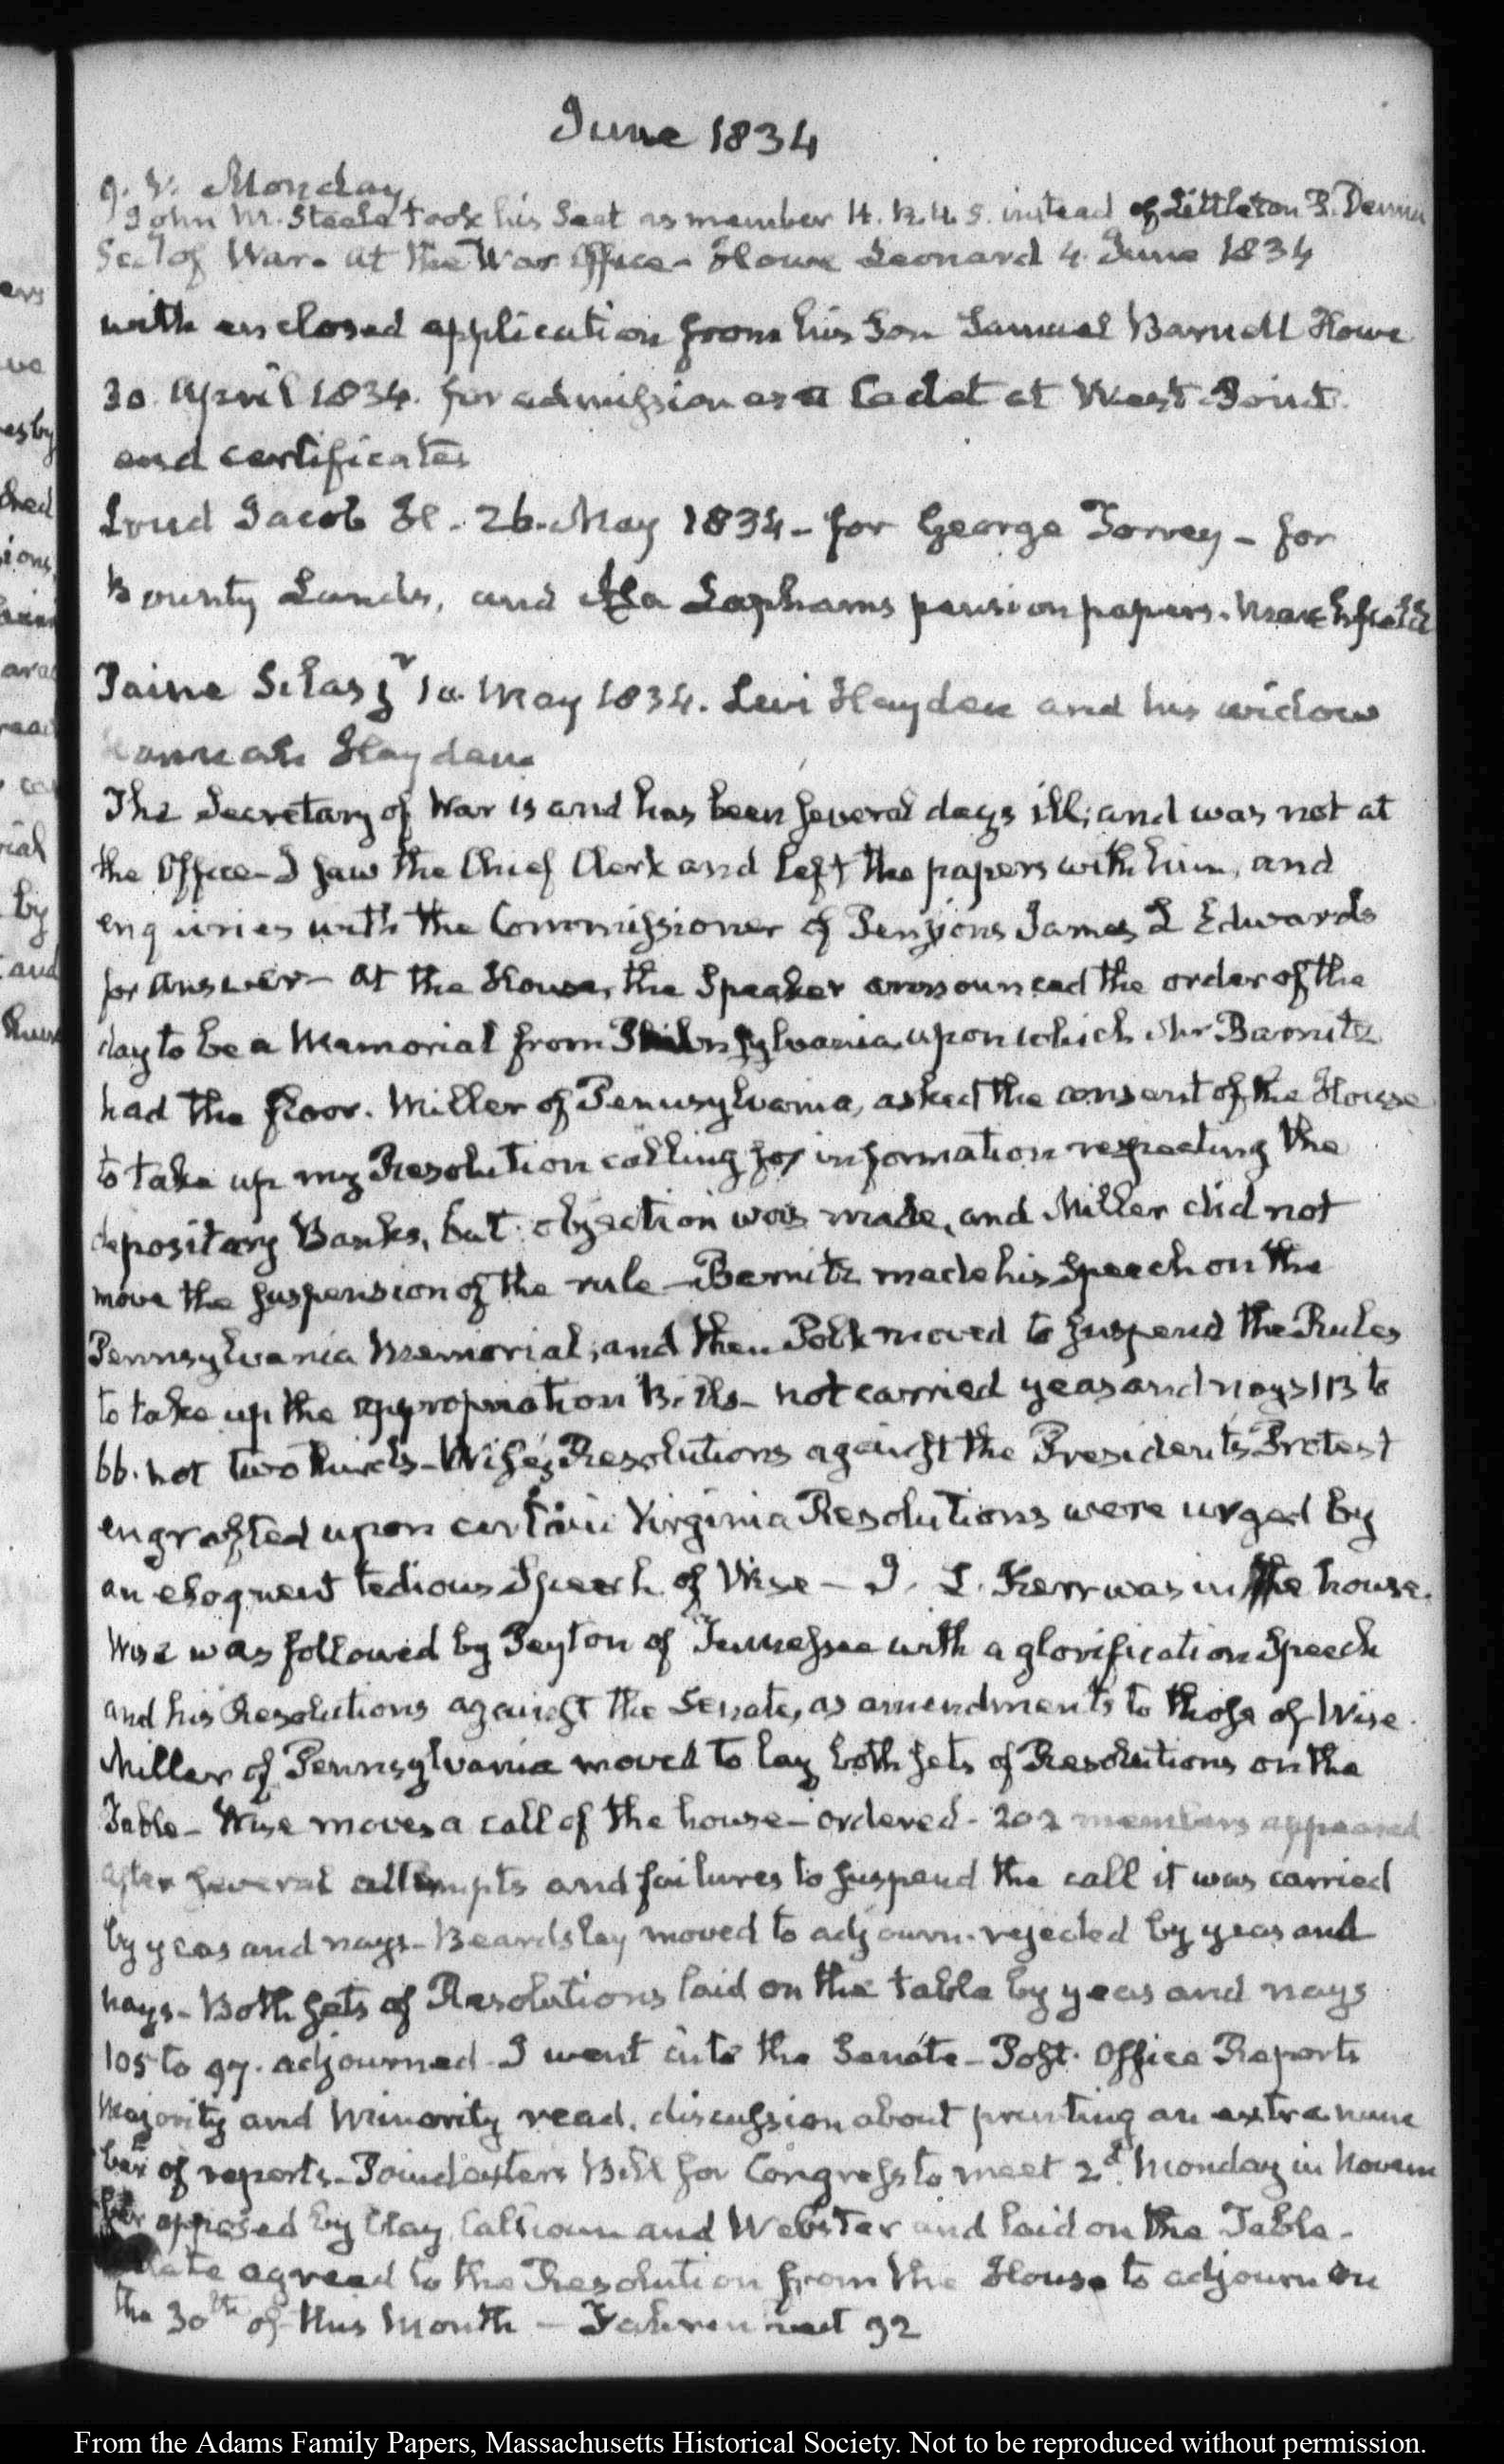 June 1834
9. V. Monday
John N. Steele took his Seat as member H. R. U. S. instead of Littleton P. Dennis
Secy of War. at the War Office - Howe Leonard 4. June 1834
with enclosed application from his Son Samuel Howe
30. April 1834. for admission as a Cadet at West-Point.
and certificates
Loud Jacob H. - 26. May 1834 - for George Torrey - for
Bounty Lands, and Laphams pension papers. Marshfield
Paine Silas jr 10. May 1834. Levi Hayden and his widow
Hannah Hayden.
The Secretary of War is and has been several days ill; and was not at
the Office - I saw the Chief Clerk and left the papers with him, and
enquiries with the Commissioner of Pensions James L Edwards
for answer - at the House, the Speaker announced the order of the
day to be a Memorial from upon which Mr Barnitz
had the floor. Miller of Pennsylvania, asked the consent of the House
to take up my Resolution calling for information respecting the
depositary Banks, but objection was made, and Miller did not
move the suspension of the rule - Barnitz made his Speech on the
Pennsylvania Memorial; and then Polk moved to suspend the Rules
to take up the appropriation Bills - not carried yeas and nays 113 to
66. not two thirds - Wise's Resolutions against the President's Protest
engrafted upon certain Virginia Resolutions were urged by
an eloquent tedious Speech of Wise - J. L. Kerr was in the house.
Wise was followed by Peyton of Tennessee with a glorification Speech
and his Resolutions against the Senate, as amendments to those of Wise.
Miller of Pennsylvania moved to lay both sets of Resolutions on the
Table - Wise moves a call of the house - ordered - 202 members appeared
after several attempts and failures to suspend the call it was carried
by yeas and nays - Beardsley moved to adjourn. rejected by yeas and
nays - Both sets of Resolutions laid on the table by yeas and nays
105 to 97. adjourned - I went into the Senate - Post. Office Reports
Majority and Minority read. discussion about printing an extra num
ber of reports - Poindexters Bill for Congress to meet 2d. Monday in Novem
ber opposed by Clay, Calhoun and Webster and laid on the Table -
Senate agreed to the Resolution from the House to adjourn on
the 30th of this Month - Fahrenheit 92
From the Adams Family Papers, Massachusetts Historical Society. Not to be reproduced without permission.